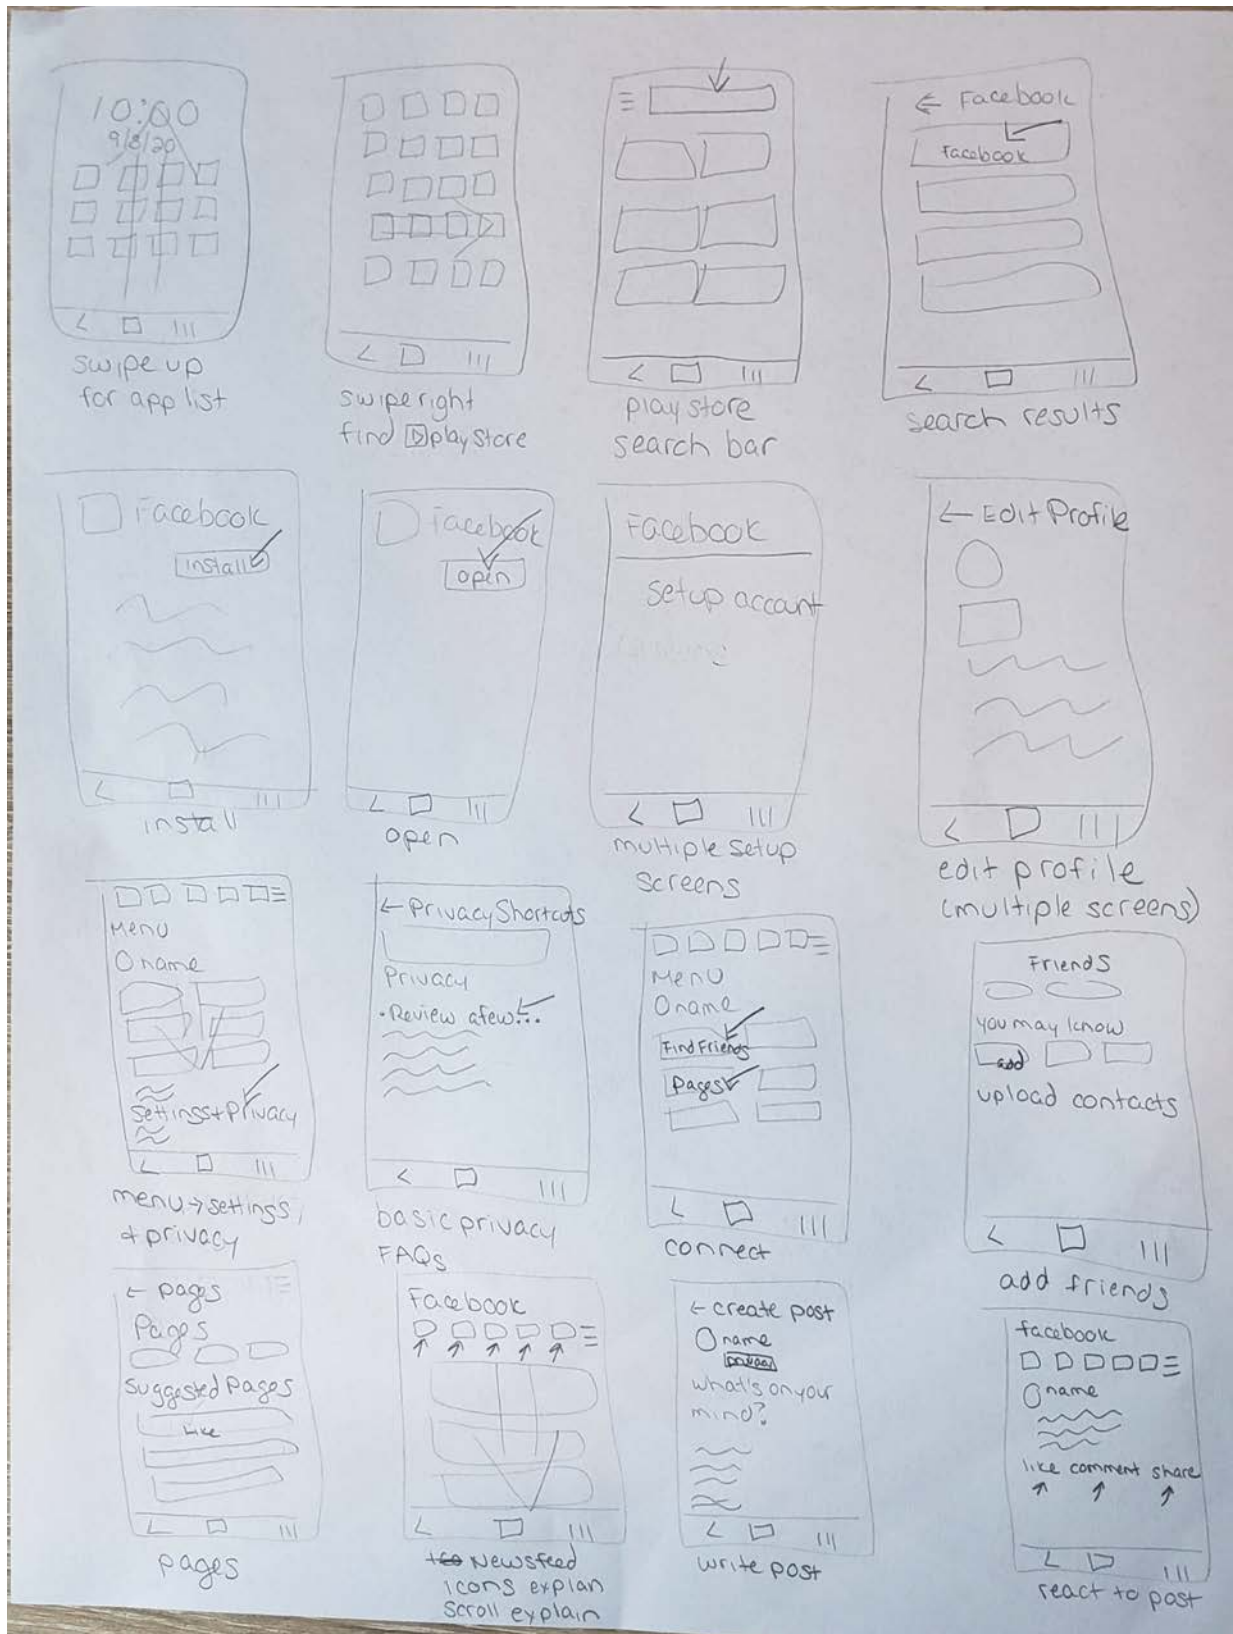 10:00
9/8/20
swipe up
for app list
swipe right
find play store
play store
search bar
← Facebook
Facebook
search results
Facebook
install
install
Facebook
open
open
Facebook
setup account
multiple setup
screens
← Edit Profile
edit profile
(multiple screens)
Menu
name
settings + privacy
menu → settings
+ privacy
← Privacy Shortcuts
Privacy
• Review a few...
basic privacy
FAQs
Menu
name
Find Friends
Pages
connect
Friends
you may know
add
upload contacts
add friends
← pages
Pages
Suggested Pages
Like
pages
Facebook
Newsfeed
icons explan
scroll explain
← create post
name
what's on your
mind?
write post
facebook
name
like comment share
react to post